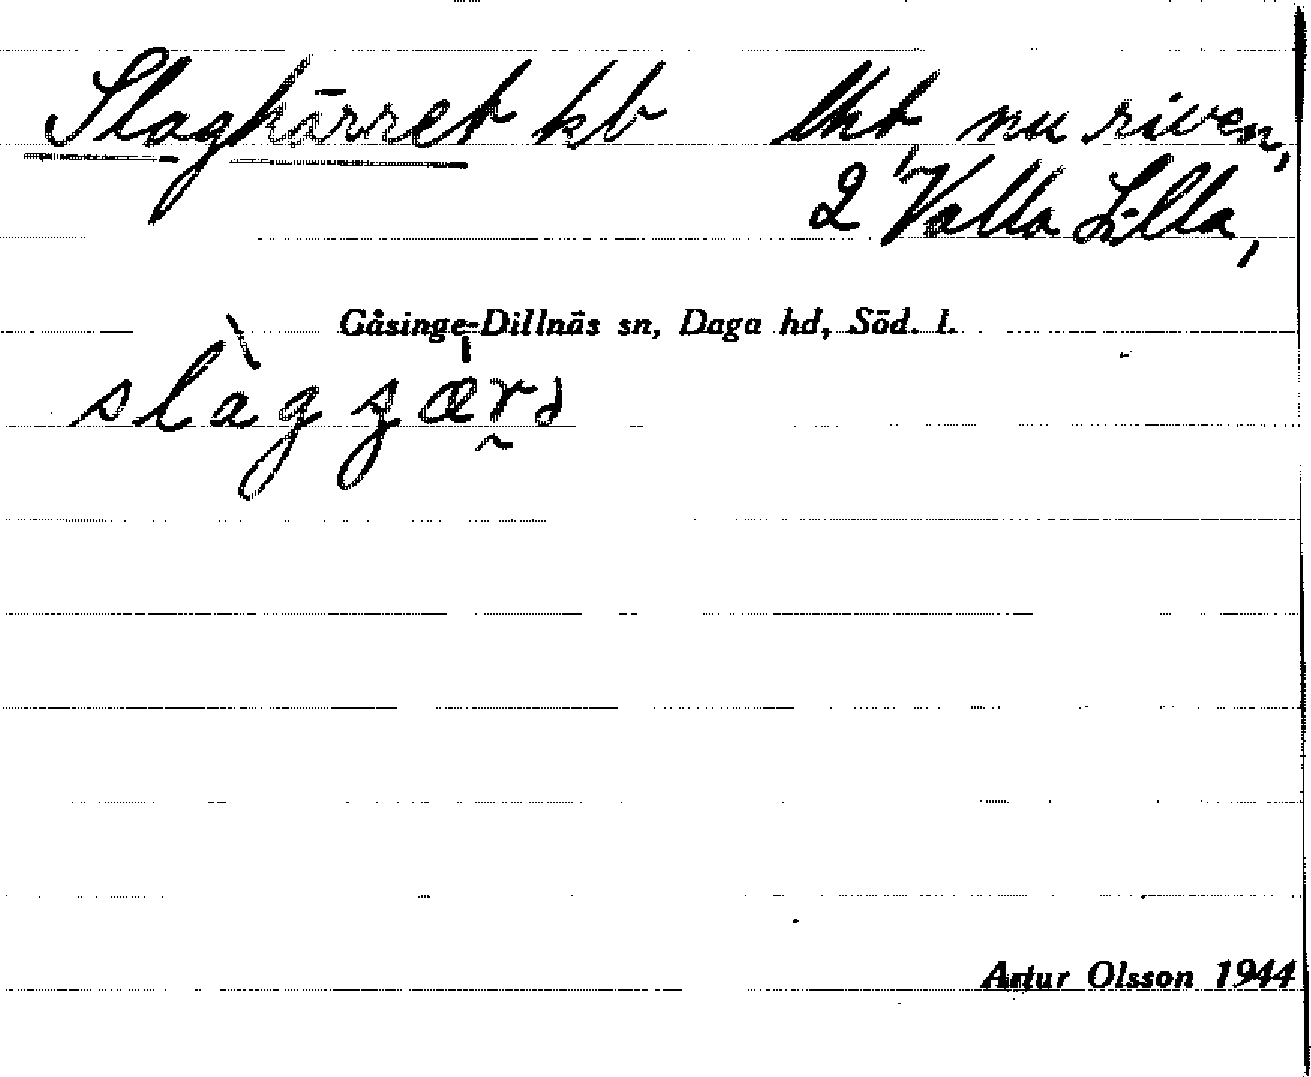 Slagkärret kb lht nu riven,
2 Valla Lilla,
Gåsinge-Dillnäs sn, Daga hd, Söd. l.
Artur Olsson 1944